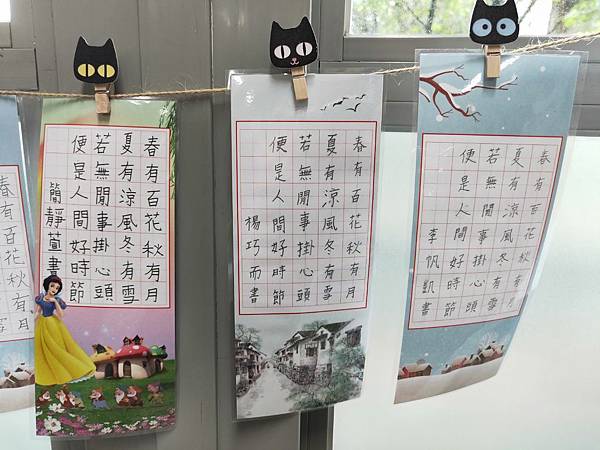 春有百花秋有月
雪
春有百花秋有月
夏有涼風冬有雪
若無閒事掛心頭
便是人間好時節
簡靜萱書
春有百花秋有月
夏有涼風冬有雪
若無閒事掛心頭
便是人間好時節
楊巧而書
春有百花秋有月
夏有涼風冬有雪
若無閒事掛心頭
便是人間好時節
李帆凱書